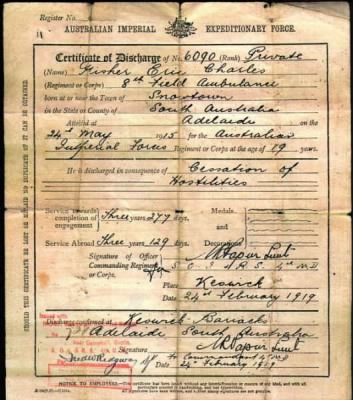 Register No.
AUSTRALIAN IMPERIAL EXPEDITIONARY FORCE.
Certificate of Discharge of No 6090 (Rank) Private
(Name) Fisher Eric Charles
(Regiment or Corps) 8th Field Ambulance
born at or near the Town of Snowtown
in the State or County of South Australia
Attested at Adelaide on the
24th May 1915 for the Australian
Imperial Forces Regiment or Corps at the age of 19 years.
He is discharged in consequence of Cessation of
Hostilities
Service towards completion of engagement Three years 277 days.
Medals
Service Abroad Three years 129 days.
Decorations
Signature of Officer Commanding Regiment
Lieut
Place Keswick
Date 24th February 1919
Discharge confirmed at Keswick Barracks
Adelaide South Australia
Signature Lieut
to Commandant 4th M.D
Date 24th February 1919
NOTICE TO EMPLOYERS.
SHOULD THIS CERTIFICATE BE LOST OR MISLAID NO DUPLICATE OF IT CAN BE OBTAINED.